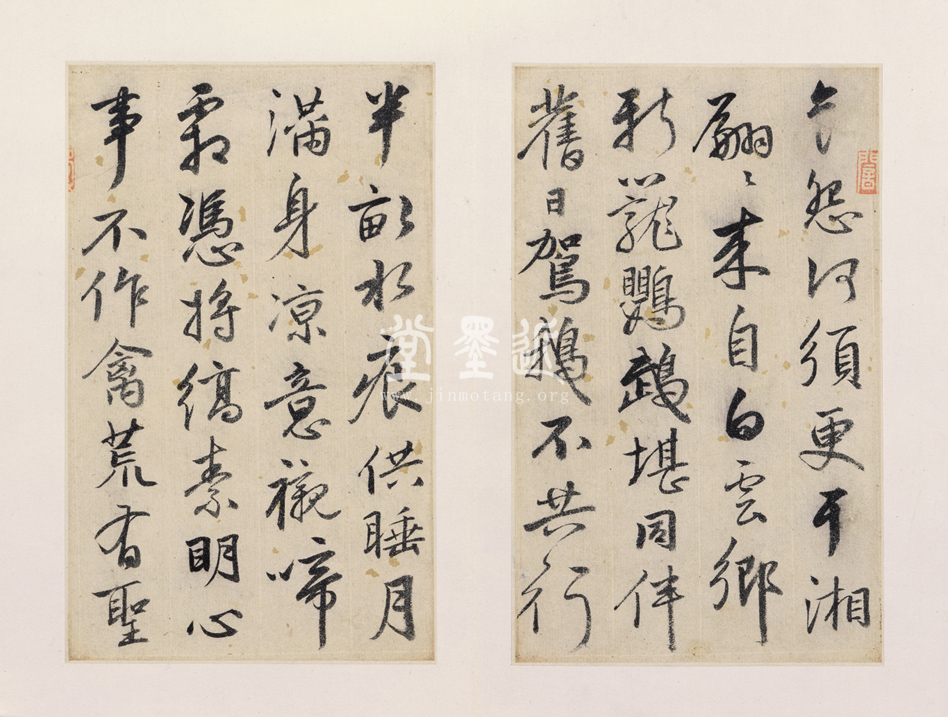 怨何須更湘
翩〻來自白雲鄉
新籠鸚鵡堪同伴
舊日駕鵝不共行
半畝水痕供睡月
滿身涼意襯啼
霜憑將縞素明心
事不作禽荒有聖
近墨堂
www.jinmotang.org